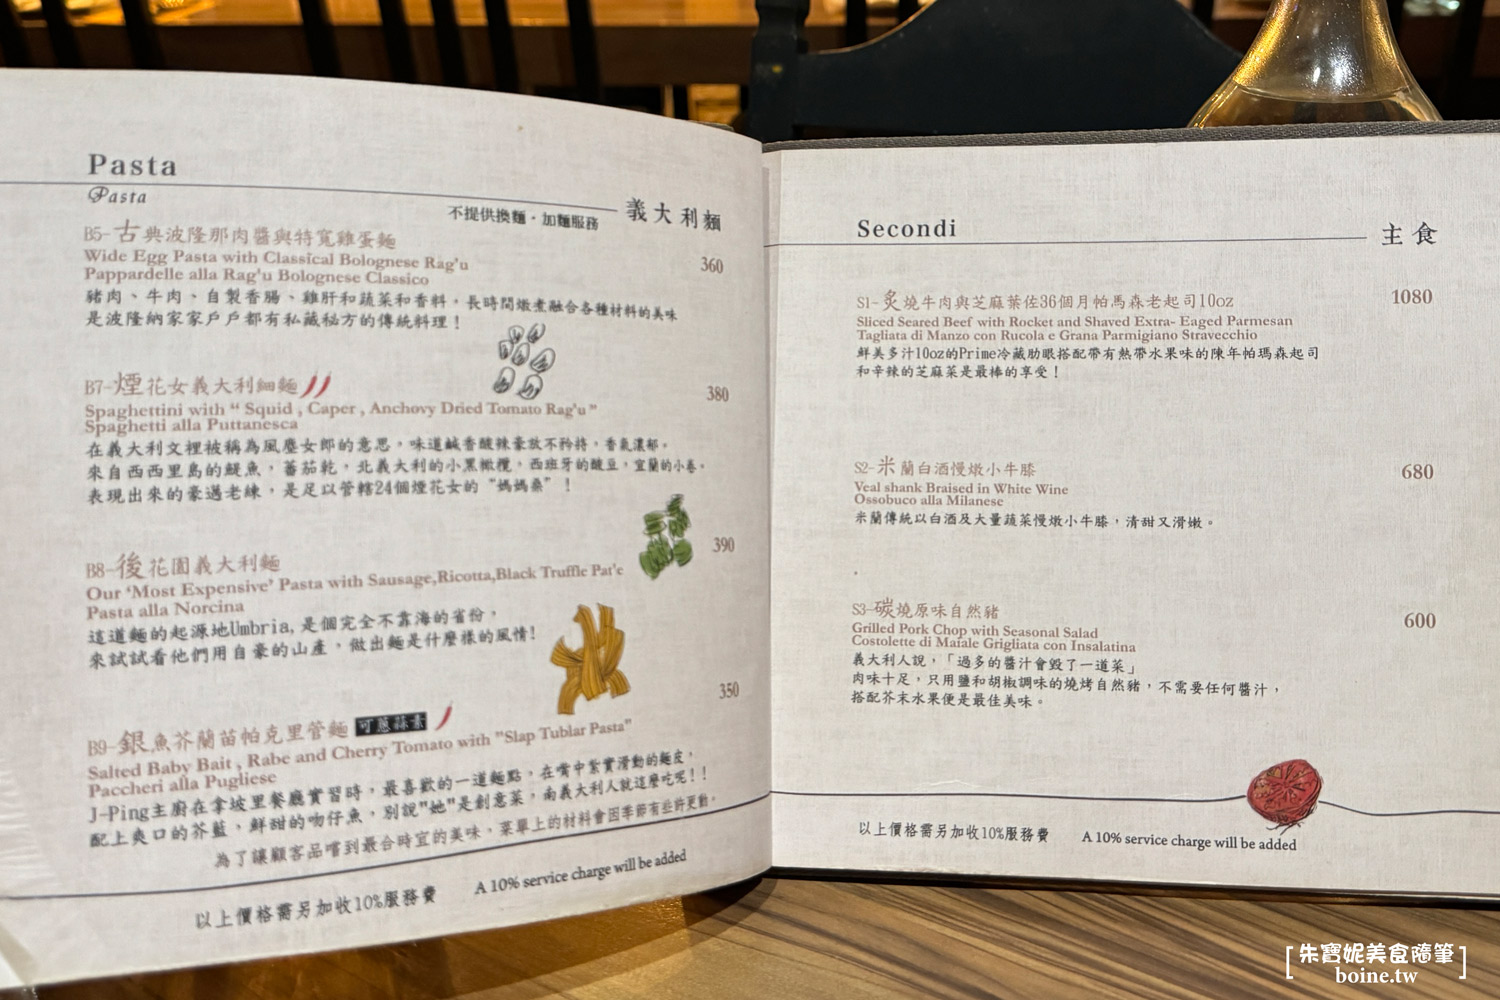 Pasta
Pasta
不提供換麵・加麵服務
義大利麵
B5-古典波隆那肉醬與特寬雞蛋麵
Wide Egg Pasta with Classical Bolognese Rag'u
Pappardelle alla Rag'u Bolognese Classico
360
豬肉、牛肉、自製香腸、雞肝和蔬菜和香料，長時間燉煮融合各種材料的美味
是波隆納家家戶戶都有私藏秘方的傳統料理！
B7-煙花女義大利細麵
380
Spaghettini with “ Squid , Caper , Anchovy Dried Tomato Rag'u ”
Spaghetti alla Puttanesca
在義大利文裡被稱為風塵女郎的意思，味道鹹香酸辣豪放不矜持，香氣濃郁，
來自西西里島的鯷魚，蕃茄乾，北義大利的小黑橄欖，西班牙的酸豆，宜蘭的小卷，
表現出來的豪邁老練，是足以管轄24個煙花女的“媽媽桑”！
B8-後花園義大利麵
390
Our ‘Most Expensive’ Pasta with Sausage,Ricotta,Black Truffle Pat'e
Pasta alla Norcina
這道麵的起源地Umbria,是個完全不靠海的省份，
來試試看他們用自豪的山產，做出麵是什麼樣的風情!
B9-銀魚芥蘭苗帕克里管麵 可蔥蒜素
350
Salted Baby Bait , Rabe and Cherry Tomato with "Slap Tublar Pasta"
Paccheri alla Pugliese
J-Ping主廚在拿坡里餐廳實習時，最喜歡的一道麵點，在嘴中紮實滑動的麵皮，
配上爽口的芥藍，鮮甜的吻仔魚，別說"她"是創意菜，南義大利人就這麼吃呢！！
為了讓顧客品嚐到最合時宜的美味，菜單上的材料會因季節有些許更動。
以上價格需另加收10%服務費
A 10% service charge will be added
Secondi
主食
S1-炙燒牛肉與芝麻葉佐36個月帕馬森老起司10oz
1080
Sliced Seared Beef with Rocket and Shaved Extra- Eaged Parmesan
Tagliata di Manzo con Rucola e Grana Parmigiano Stravecchio
鮮美多汁10oz的Prime冷藏肋眼搭配帶有熱帶水果味的陳年帕瑪森起司
和辛辣的芝麻菜是最棒的享受！
S2-米蘭白酒慢燉小牛膝
680
Veal shank Braised in White Wine
Ossobuco alla Milanese
米蘭傳統以白酒及大量蔬菜慢燉小牛膝，清甜又滑嫩。
S3-碳燒原味自然豬
600
Grilled Pork Chop with Seasonal Salad
Costolette di Maiale Grigliata con Insalatina
義大利人說，「過多的醬汁會毀了一道菜」
肉味十足，只用鹽和胡椒調味的燒烤自然豬，不需要任何醬汁，
搭配芥末水果便是最佳美味。
以上價格需另加收10%服務費
A 10% service charge will be added
朱寶妮美食隨筆
boine.tw